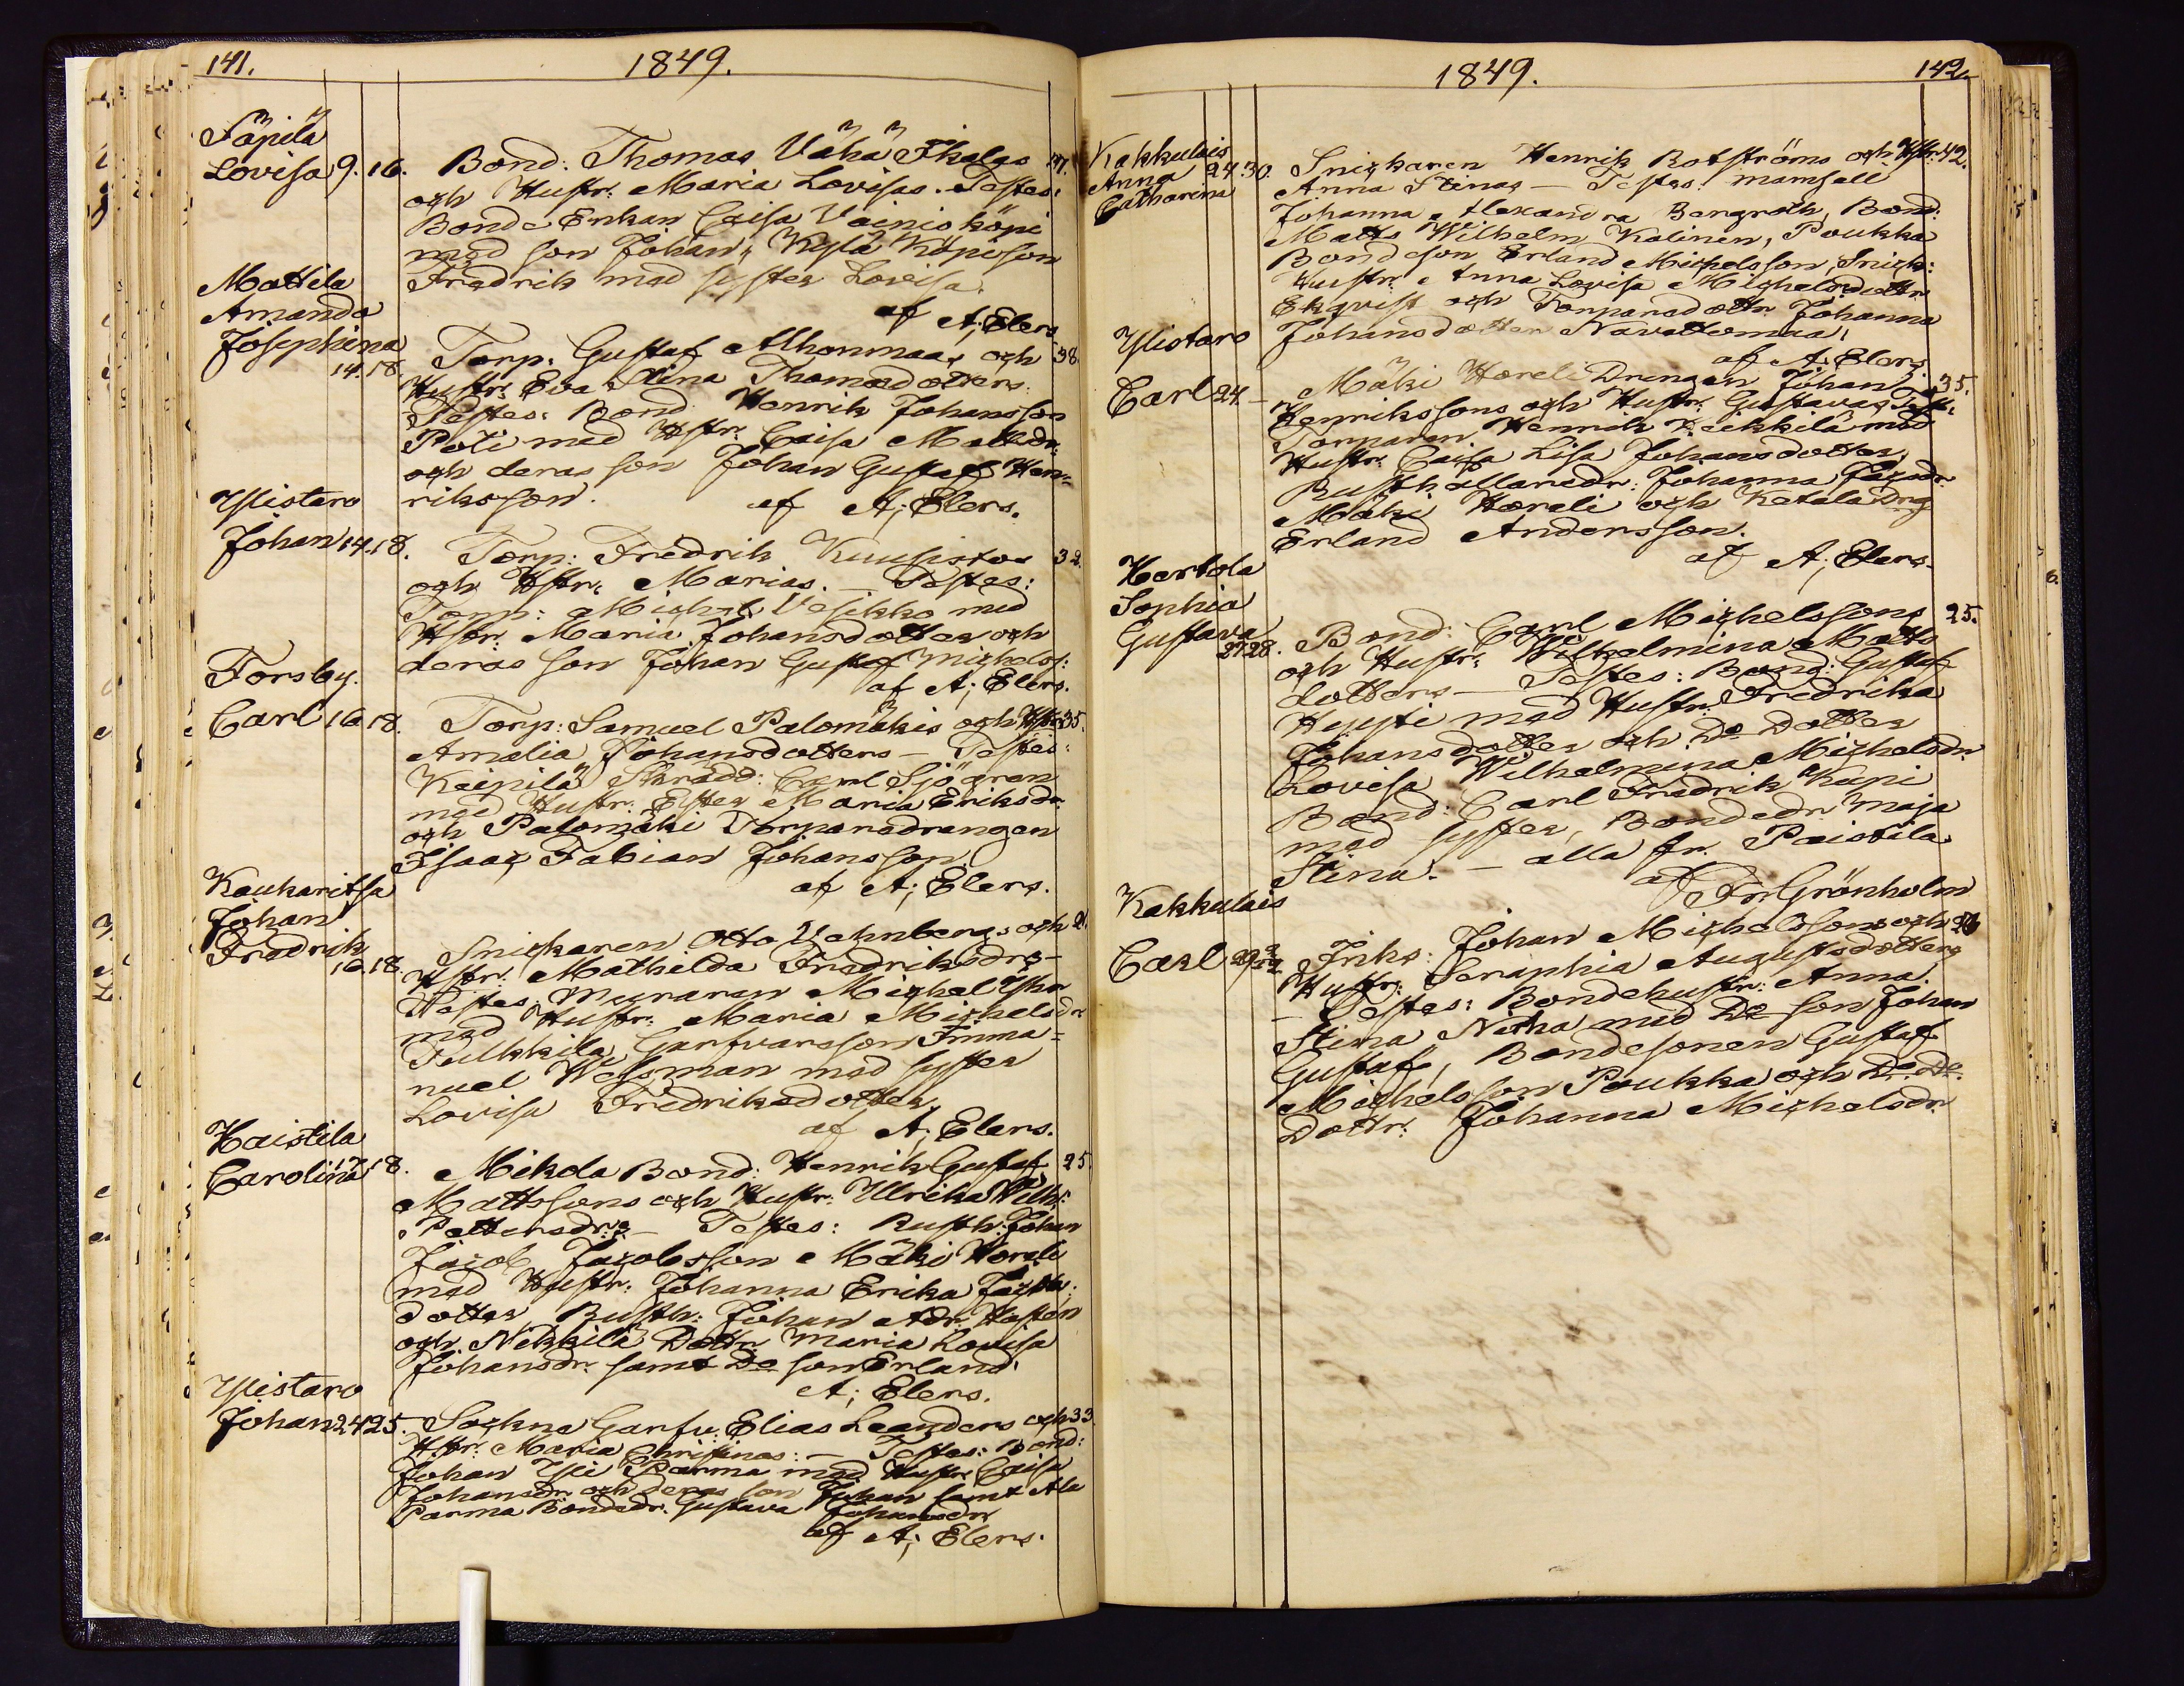 141.
1849.
Säpilä
Lovisa 9. 16. Bond: Thomas Vähä Ihalas
och Hustr. Maria Lovisas. Testes:
Bonde Enkan Caisa Vainioköpi
med son Johan, Kylä Köpi son
Fredrik med syster Lovisa.
af A; Elers
Mattila
Amanda
Josephina
14. 18. Torp. Gustaf Alhonmaas och 38.
Hustr. Eva Stina Thomasdotters.
Testes: Bond Henrik Johansson
Poti med Hstr. Caisa Mattsdr.
och deras son Johan Gustaf Hen-
riksson. af A; Elers.
Ylistaro
Johan 14. 18. Torp: Fredrik Kuusistos 32.
och Hstr. Marias. - Testes:
Torp: Michel Vesikko med
Hstr. Maria Johansdotter och
deras son Johan Gustaf Michelss:
af A; Elers.
Forsby.
Carl 16. 18. Torp: Samuel Palomäkis och Hstr. 35.
Amalia Johansdotters - Testes:
Keipilä Skrädd: Carl Sjögren
med Hustr. Ester Maria Eriksdr.
och Palomäki Torparedrengen
Isaac Fabian Johansson.
af A; Elers.
Kaukaritsa
Johan
Fredrik
16. 18. Snickaren Otto Vahnbergs och 21.
Hstr. Mathilda Fredriksdrs -
Testes. Muraren Michel
med Hustr. Maria Michelsdr
Tulkkila Garfvarsson Imma-
nuel Welsman med syster
Lovisa Fredriksdotter.
af A; Elers.
Haistila
Carolina 17. 18. Mikola Bond: Henrik Gustaf 25.
Mattssons och Hustr. Ullrika Wilh:
Pettersdrs. - Testes: Rusth. Johan
Jacob Jacobsson Mäki Horeli
med Hustr: Johanna Erika Jacobs:
dotter, Rusth: Johan Adr. Hasten
och Nikkilä Dottr. Maria Lovisa
Johansdr. samt Do son Erland.
A; Elers.
Ylistaro
Johan 24 25. Sockne Garfv. Elias Leanders och 33.
Hstr. Maria Christinas: - Testes: Bond:
Johan Yli Parma med Hustr. Caisa
Johansdr och deras son Johan samt Ala
Parma Bondedr. Gustava Johansdr.
af A; Elers.
1849.
142.
Kakkulais
Anna 24. 30. Snickaren Henrik Botströms och Hstr. 42.
Catharina
Anna Stinas - Testes: Mamsell
Johanna Alexandra Bergroth, Bond:
Matts Wilhelm Kalinen, Poukka
Bondeson Erland Michelsson, Snick:
Hustr. Anna Lovisa Michelsdotter
Ekqvist och Torparedottr. Johanna
Johansdotter Navettomaa.
af A; Elers
Ylistaro
Carl 24. - Mäki Horeli Drengen Johan 35.
Henrikssons och Hustr. Gustavas. Test:
Torparen Henrik Heikkilä med
Hustr. Caisa Lisa Johansdotter,
Rusthållaredr: Johanna Jacsdr.
Mäki Horeli och Katala Drg
Erland Andersson.
af A; Elers.
Hertola
Sophia
Gustava
27. 28. Bond: Carl Michelssons 25.
och Hustr. Wilhelmina Matts
dotters - Testes: Bond: Gustaf
Hyysti med Hustr. Fredrika
Johansdotter och Do Dotter
Lovisa Wilhelmina Michelsdr.
Bond: Carl Fredrik Kepi
med syster, Bondedr. Maja
Stina. - alla fr. Paistila
af Fr. Grönholm
Kakkulais
Carl 29 Inhs: Johan Michelssons och 26
Hustr. Seraphia Augustsdotters
- Testes: Bondehustr. Anna
Stina Nitha med Do son Johan
Gustaf, Bondesonen Gustaf
Michelsson Poukka och Do Do
Dottr. Johanna Michelsdr.